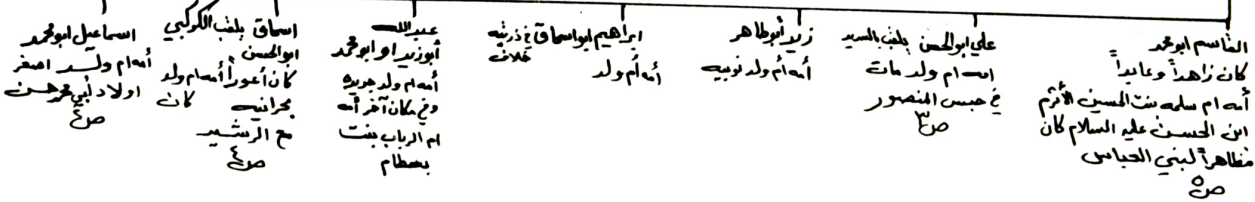 القاسم ابو محمد
كان زاهداً وعابداً
أمه ام سلمه بنت الحسين الأثرم
ابن الحسن عليه السلام كان
مظاهراً لبني العباس
ص٥
علي ابو الحسن يلقب بالسديد
امه ام ولد مات
في حبس المنصور
ص٣
زيد أبو طاهر
أمه أم ولد نوبيه
ابراهيم ابو اسحاق في ذريته
خلاف
أمه أم ولد
عبدالله
أبو زيد او ابو محمد
أمه ام ولد
وفي مكان آخر أمه
ام الرباب بنت
بسطام
اسحاق يلقب الكوكبي
ابو الحسن
كان أعوراً أمه ام ولد
بحرانيه كان
مع الرشيد
ص٤
اسماعيل ابو محمد
أمه ام ولد اصغر
اولاد أبي محمد حسن
ص٤